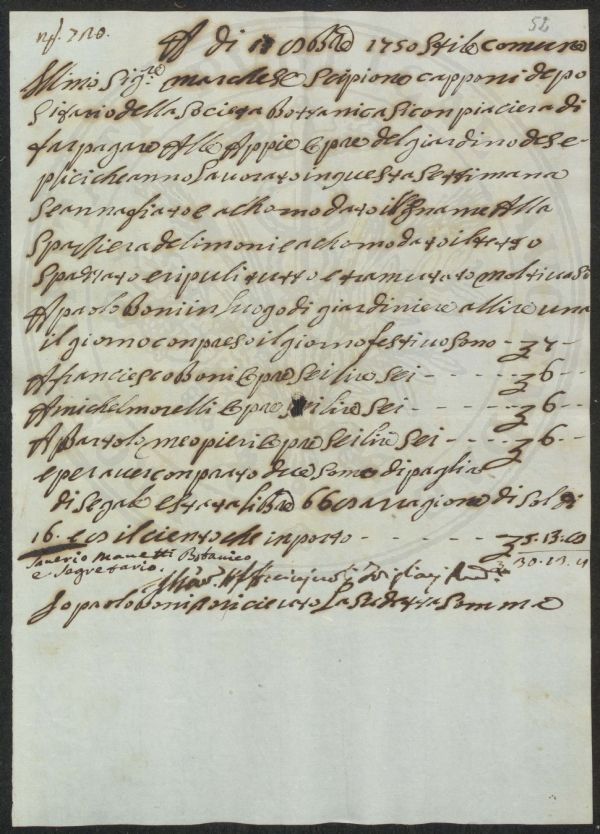 52
A di 8bre 1750 Stile comune
Illmo Sigre marchese Scipione capponi depo
Sitario della Società Bottanica Si conpiacierà di
far pagare Alle Appie opre del giardino de Se
plici che anno lavorato in questa Settimana
Se annafiato e achomodato il legname Alla
Spalliera de limoni e achomodato il terzo
Spazzato e ripulito tutto e tramutato molti vasi
A paolo Boni in luogo di giardiniere a llire una
il giorno conpreso il giorno festivo Sono - 7 - -
A franciesco Boni opre Sei lire Sei - - - - 6 - -
A michel morelli opre Sei lire Sei - - - 6 - -
A Bartolomeo pieri opre Sei lire Sei - - - - 6 - -
e per aver conprato due Some di paglia
di Segale e Stata libbre 66 a ragione di Soldi
16. il ciento che inporta - - - - - 5.13.
Saverio Manetti Botanico
e Segretario.
Io paolo Boni ò riceuto la Sudetta Somma